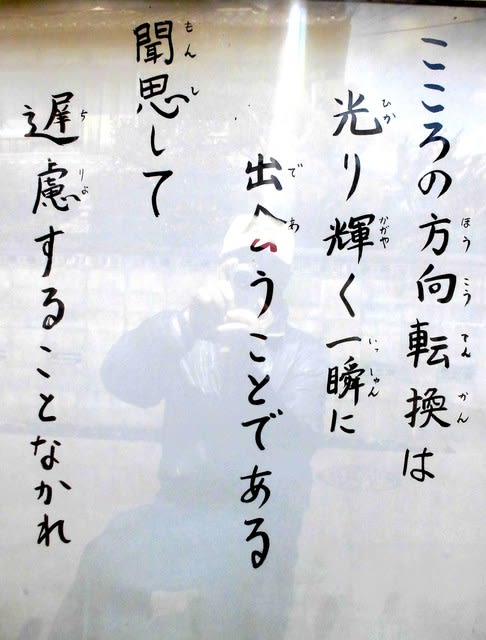 こころの方向転換は
光り輝く一瞬に
出合うことである
聞思して
遅慮することなかれ